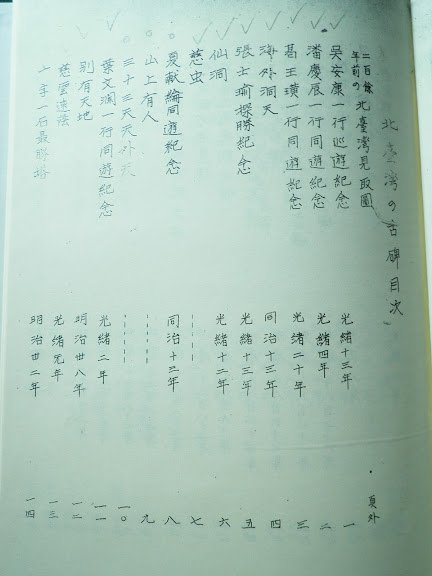 北臺灣の古碑目次
二百餘年前の北臺灣見取圖 頁外
吳安康一行巡遊紀念 光緒十三年 一
潘慶辰一行同遊紀念 光緒四年 二
葛王璜一行同遊紀念 光緒二十年 三
海外洞天 同治十三年 四
張士瑜探勝紀念 光緒十三年 五
仙洞 光緒十二年 六
慈虫 ---- 七
夏献綸同遊紀念 同治十三年 八
山上有人 ---- 九
三十三天天外天 ---- 一〇
葉文瀾一行同遊紀念 光緒二年 一一
別有天地 明治廿八年 一二
慈雲遠蔭 光緒元年 一三
一字一石最勝塔 明治卅二年 一四